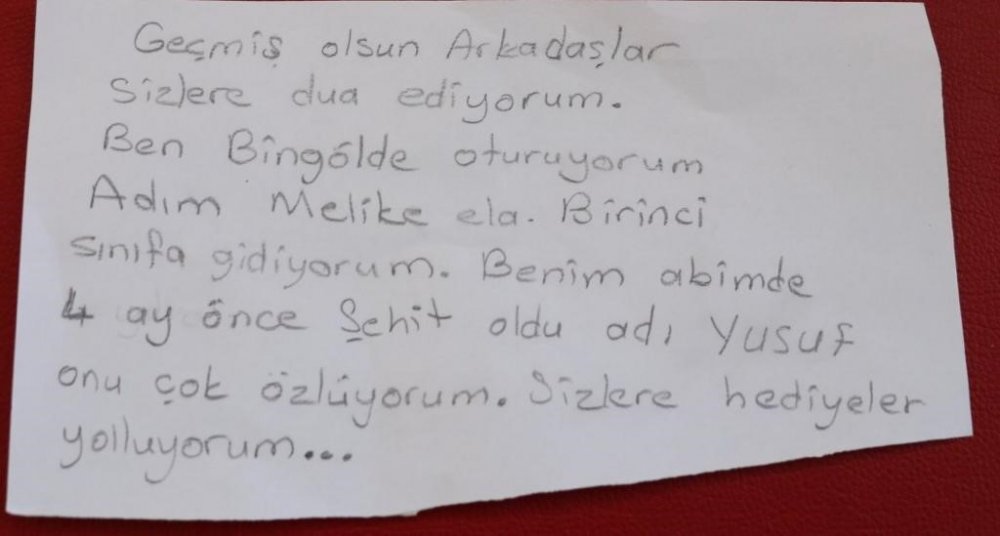 Geçmiş olsun Arkadaşlar
Sizlere dua ediyorum.
Ben Bingölde oturuyorum
Adım Melike ela. Birinci
sınıfa gidiyorum. Benim abimde
4 ay önce Şehit oldu adı Yusuf
onu çok özlüyorum. Sizlere hediyeler
yolluyorum...